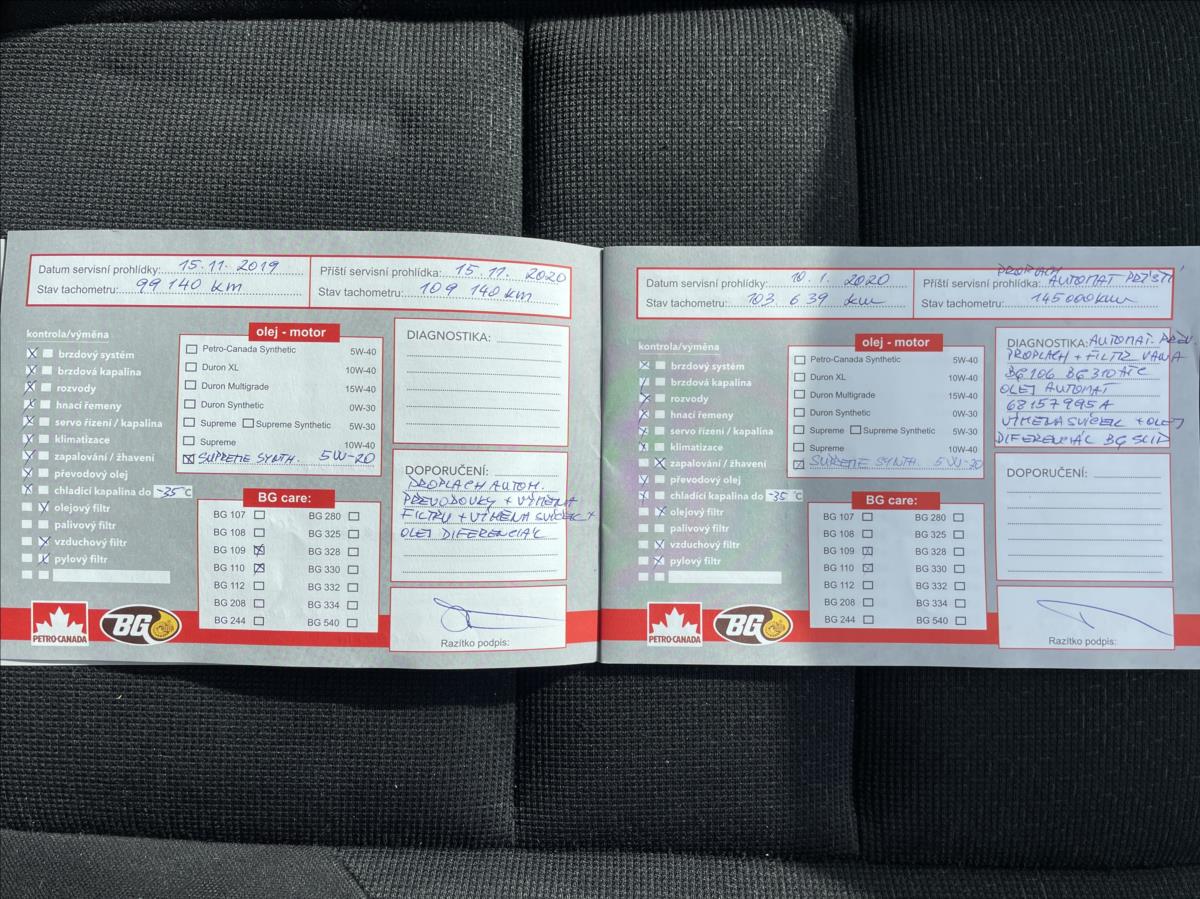 Datum servisní prohlídky: 15.11.2019
Stav tachometru: 99 140 km
Příští servisní prohlídka: 15.11. 2020
Stav tachometru: 109 140 km
kontrola/výměna
brzdový systém
brzdová kapalina
rozvody
hnací řemeny
servo řízení / kapalina
klimatizace
zapalování / žhavení
převodový olej
chladící kapalina do -35°C
olejový filtr
palivový filtr
vzduchový filtr
pylový filtr
olej - motor
Petro-Canada Synthetic 5W-40
Duron XL 10W-40
Duron Multigrade 15W-40
Duron Synthetic 0W-30
Supreme Supreme Synthetic 5W-30
Supreme 10W-40
SUPREME SYNTH. 5W-20
BG care:
BG 107 BG 280
BG 108 BG 325
BG 109 BG 328
BG 110 BG 330
BG 112 BG 332
BG 208 BG 334
BG 244 BG 540
DIAGNOSTIKA:
DOPORUČENÍ:
PROPLACH AUTOM.
PŘEVODOVKY + VÝMĚNA
FILTRU + VÝMĚNA SVÍČEK +
OLEJ DIFERENCIÁL
Razítko podpis:
PETRO-CANADA
BG
Datum servisní prohlídky: 10.1. 2020
Stav tachometru: 103 639 km
PROPLACH
Příští servisní prohlídka: AUTOMAT PŘÍŠTÍ
Stav tachometru: 145000km
kontrola/výměna
brzdový systém
brzdová kapalina
rozvody
hnací řemeny
servo řízení / kapalina
klimatizace
zapalování / žhavení
převodový olej
chladící kapalina do -35°C
olejový filtr
palivový filtr
vzduchový filtr
pylový filtr
olej - motor
Petro-Canada Synthetic 5W-40
Duron XL 10W-40
Duron Multigrade 15W-40
Duron Synthetic 0W-30
Supreme Supreme Synthetic 5W-30
Supreme 10W-40
SUPREME SYNTH. 5W-20
BG care:
BG 107 BG 280
BG 108 BG 325
BG 109 BG 328
BG 110 BG 330
BG 112 BG 332
BG 208 BG 334
BG 244 BG 540
DIAGNOSTIKA: AUTOMAT. PŘEV.
PROPLACH + FILTR VANA
BG 106 BG 310 ATC
OLEJ AUTOMAT
68157995A
VÝMĚNA SVÍČEK + OLEJ
DIFERENCIÁL BG SLID
DOPORUČENÍ:
Razítko podpis:
PETRO-CANADA
BG